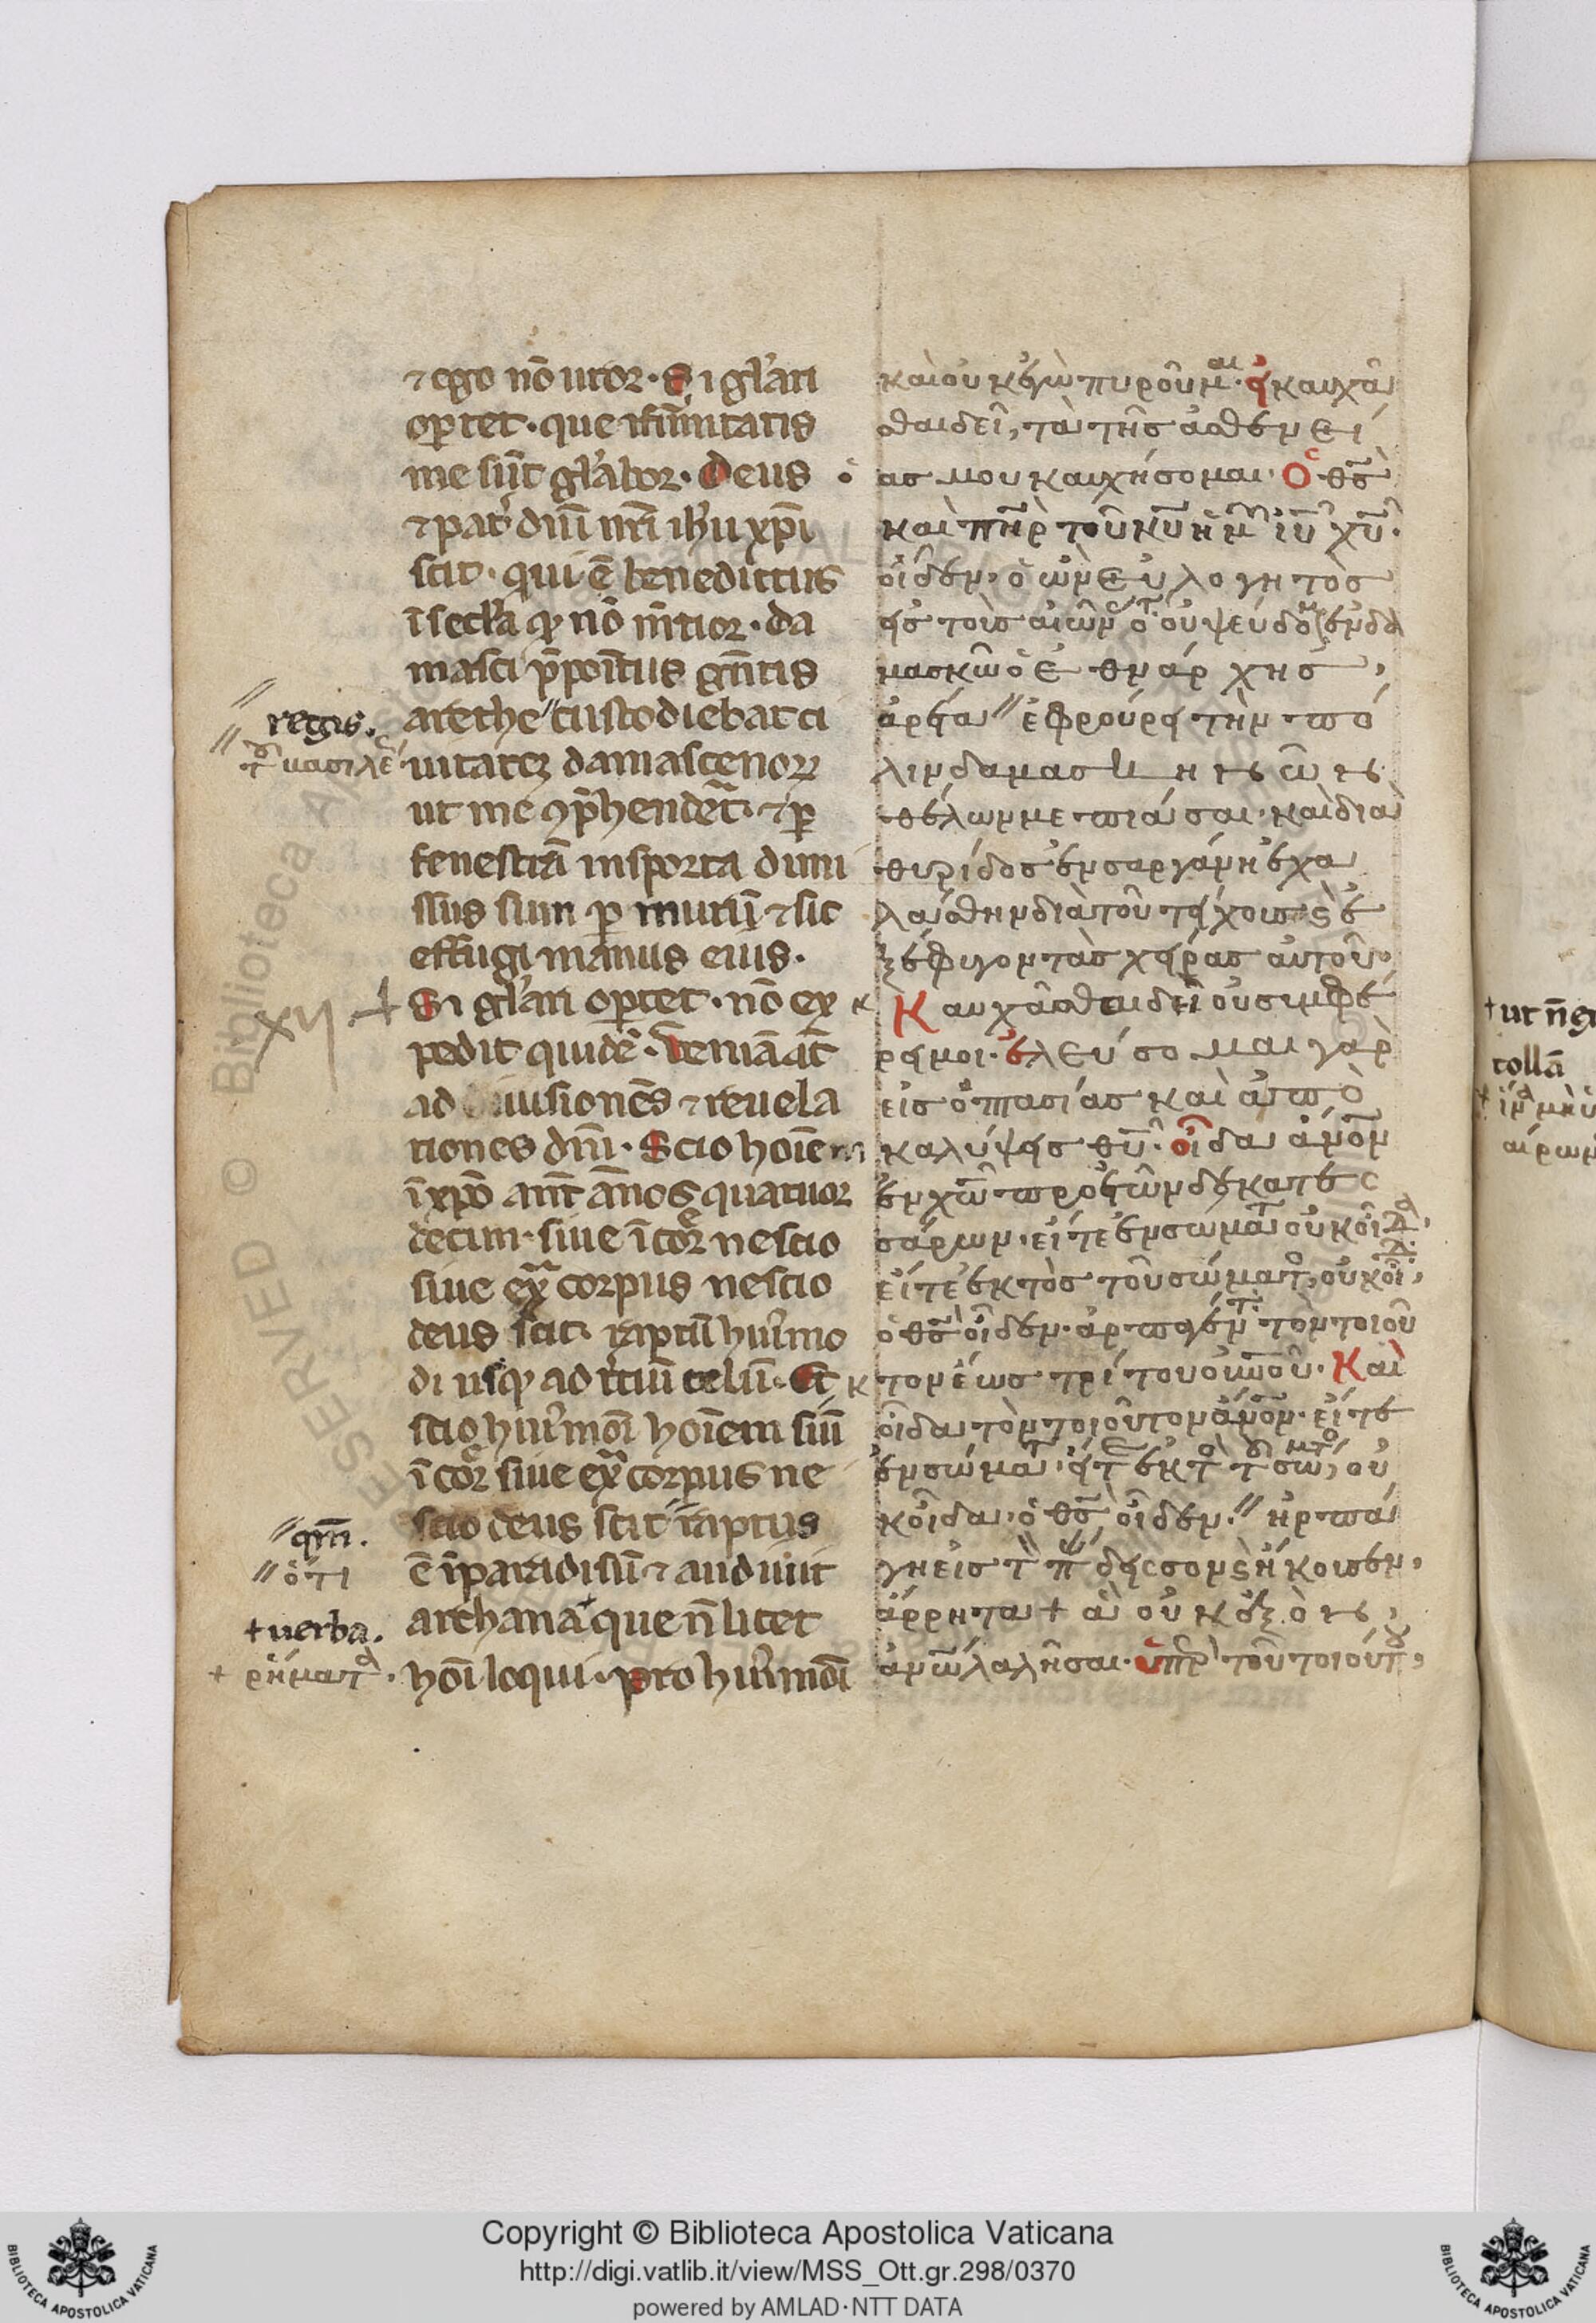 ⁊ ego nō uror · Si gl'ari
oꝑtet · que ifirmitatis
me sūt gl'abor · Deus
⁊ pat' dñi nr̄i ih'u xp̄i
scit · qui ē benedictus
ī secl'a ꝙ nō m̄tior · da
masci p̄poītus gn̄tis
arethe〃custodiebat ci
uitateꝫ damascenoꝝ
ut me ꝯp̄henderet · ⁊ ꝑ
fenestrā in sporta dimi
ssus sum ꝑ murū ⁊ sic
effugi manus eius ·
Si gl'ari oꝑtet · nō ex
pedit quidē · Veniā aūt
ad uisiones ⁊ reuela
tiones dn̄i · Scio hoiēm
ī xp̄o an̄t annos quatuor
decim · siue ī corꝑe nescio
siue ext̄ corpus nescio
deus scit · raptū hui'mo
di usꝙ ad t'ciū celū · Et
scio hui'mōi hoīem siue
ī corꝑe siue ext̄ corpus ne
scio deus scit〃raptus
ē ī paradisū ⁊ audiuit
archana+que n̄ licet
hoī loqui · pro hui'mōi
〃regis.
〃τοῦ βασιλέ
XII
〃qm̄.
〃ὅτι
+uerba.
+ ῥήματα.
καὶ οὐκ ἐγὼ πυροῦμαι · εἰ καυχᾶ
σθαι δεῖ, τὰ τῆς ἀσθενεί
ας μου καυχήσομαι · Ὁ θς̄
καὶ πη̄ρ τοῦ κῡ ἡμ ῑῡ χῡ ·
οἶδεν · ὁ ὢν εὐλογητὸς
εἰς τοὺς αἰῶν ὅτ οὐ ψεύδομ ἐν δα
μασκῷ ὁ ἐθνάρχης,
ἀρέτα〃ἐφρούρει τὴν πό
λιν δαμασκηνῶν
θέλων με πιάσαι · καὶ διὰ
θυρίδος ἐν σαργάνῃ ἐχα
λάσθην διὰ τοῦ τείχους ϗ ἐ
ξέφυγον τὰς χεῖρας αὐτοῦ
Καυχᾶσθαι δεῖ οὐ συμφέ
ρει μοι · ἐλεύσομαι γὰρ
εἰς ὀπτασίας καὶ ἀπο
καλύψεις θῡ · οἶδα ἀν̄ο̄ν
ἐν χω̄ πρὸ ἐτῶν δεκατεσ
σάρων · εἴτε ἐν σώματ οὐκ οἶδα,
εἴτε ἐκτὸς τοῦ σώματο, οὐκ οἶδα,
ὁ θς̄ οἶδεν · ἁρπαγέντ τὸν τοιοῦ
τον ἕως τρίτου οὐνοῦ · Καὶ
οἶδα τὸν τοιοῦτον ἀν̄ο̄ν · εἴτε
ἐν σώματ · εἴτε ἐκτὸ τοῦ σώματο, οὐ
κ οἶδα · ὁ θς̄ οἶδεν ·〃ἡρπά
γη εἰς τ π δεισον ϗ ἤκουσεν,
ἄρρητα + ἃ οὐκ ἐξὸν,
ἀνω̄ λαλῆσαι · ὑπὲρ τοῦ τοιούτου,
+ut n̄ ex
tollā
+ ἵνα μὴ ὑ
αίρωμ
Copyright © Biblioteca Apostolica Vaticana
http://digi.vatlib.it/view/MSS_Ott.gr.298/0370
powered by AMLAD·NTT DATA
BIBLIOTECA APOSTOLICA VATICANA
BIBLIOTECA APOSTOLICA VATICANA